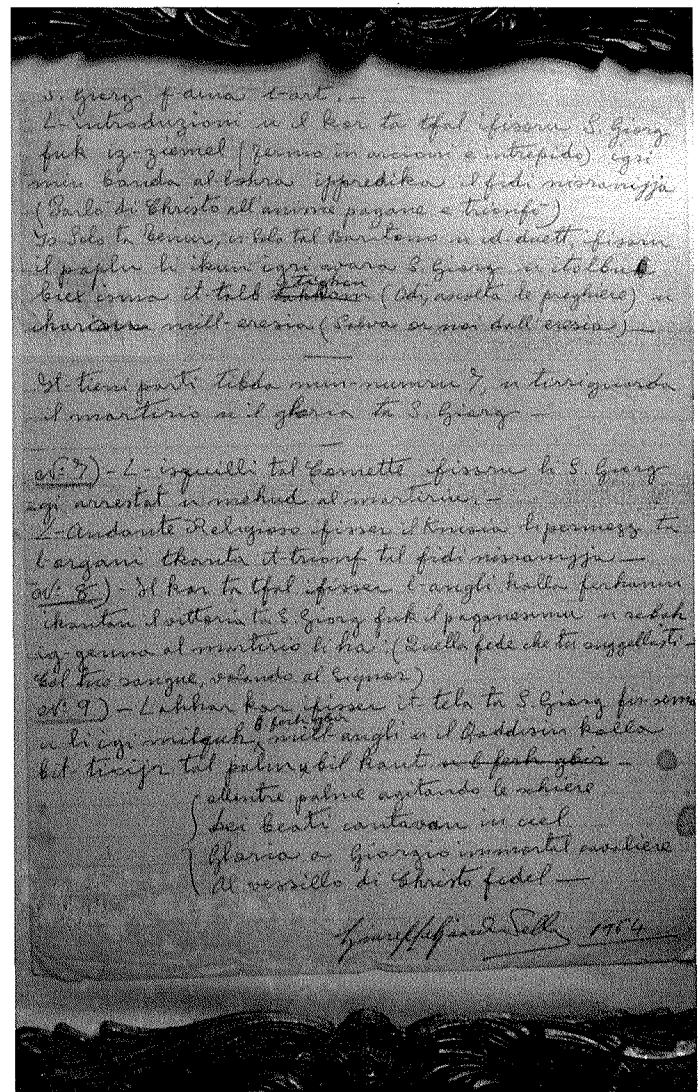 S. Giorg f'dina l-art. —
L-introduzioni u il kor ta tfal ifissru S. Giorg
fuk iz-ziemel (Fermo in arcioni e intrepido) igri
minn banda al-lohra ippredika il fidi nisranyja
(Parlò di Christo all'anime pagane e trionfò)
Is Solo ta Tenur, is Solo tal Baritono u id duett, fissru
il poplu li ikun igri wara S. Giorg u italbu
biex isma it-talb tieghu (Odi, ascolta le preghiere) u
iharisna mill-eresia (Salva or noi dall'eresia) —
It-tieni parti tibda min-numru 7, u tirriguarda
il martirio u il gloria ta S. Giorg —
No: 7) - L-isquilli tal Cornette ifissru li S. Giorg
igi arrestat u mehud al martirju. —
L-Andante Religioso ifisser il Knisia li permezz ta
l'organi tkanta it-trionf tal fidi nisranyja —
No: 8) - Il kor ta tfal ifisser l-angli kollha ferhanin
ikantau il vittoria ta S. Giorg fuk il paganesimu u rebah
ig-genna al martirio li ha. (Quella fede che tu suggellasti -
Col tuo sangue, volando al Signor)
No: 9) - L-ahhar kor ifisser it-tela ta S. Giorg fis-sema
u li igi milquh b'ferh gbir mill angli u il Qaddisin kollha
bit-ticijr tal palm u bil kant u b ferh gbir —
Mentre palme agitando le schiere
Dei beati cantavan in ciel
Gloria a Giorgio immortal cavaliere
Al vessillo di Christo fedel —
1964